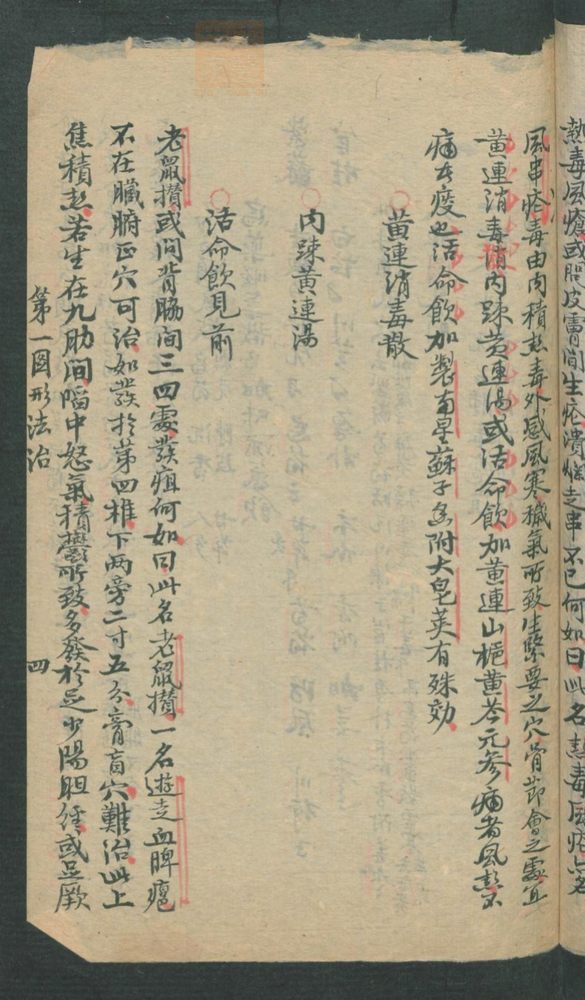 熱毒風瘡或肌皮膚間生疙瘩後走串不已何如曰此名熱毒風疙一名
風串疙毒由內積热毒外感風寒穢氣所致生緊要之穴骨節會之處宜
黃連消毒消內踈黃連湯或活命飲加黃連山梔黃芩元参痛者風熱不
痛者痰也活命飲加製南星蘇子香附大皂莢有殊効
黃連消毒散
內踈黃連湯
活命飲見前
老鼠攅或问背脇间三四處發疽何如曰此名老鼠攅一名遊走血脾癰
不在臟腑正穴可治如發扵第四椎下两旁二寸五分膏肓穴難治此上
焦積热若生在九肋间陷中怒氣積鬱所致多發於足少陽胆經或足厥
第一圖形法治
四